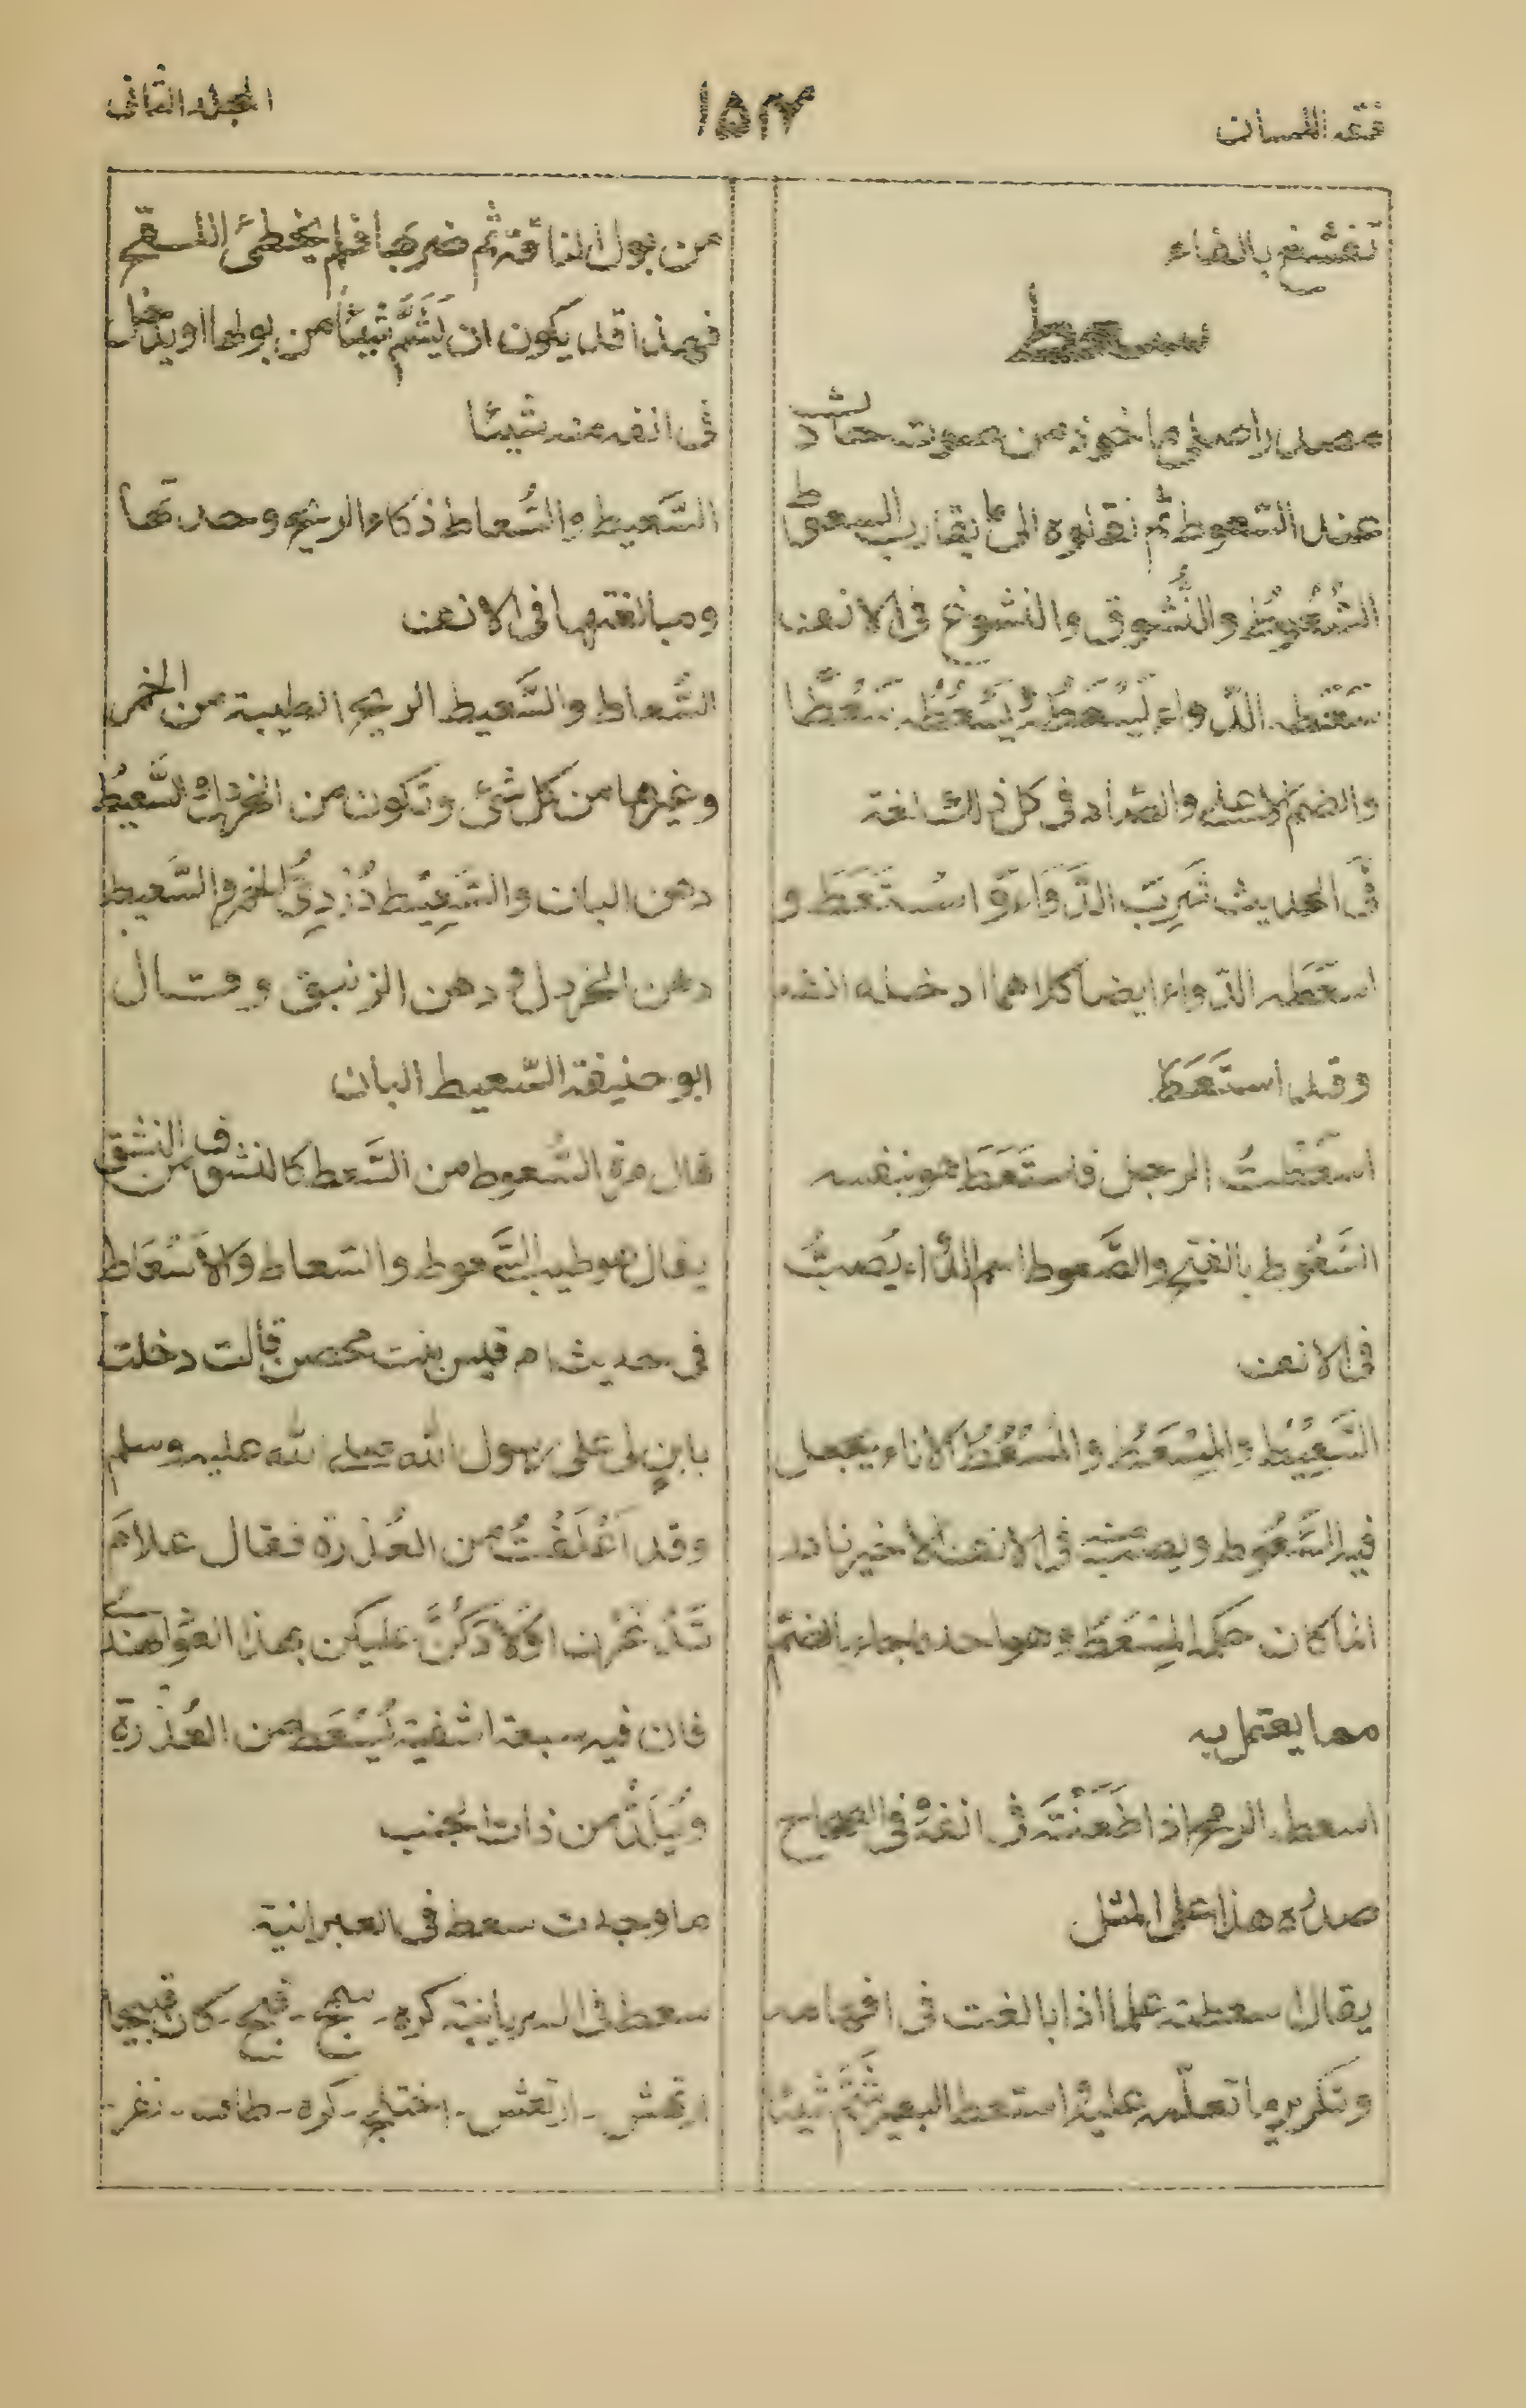 فقه اللسان
١٥٢
المجلد الثانى
تنشغ بالضاء
سعط
مصدر اصلى ماخوذ من صوت حادث
عند السّعوط ثم نقلوه الى ما يقارب السعوط
السُّعُوط والنُّشُوق والنشوغ فى الانف
سَعَطه الدّواء يَسْعَطُه ويَسْعُطُه سَعْطًا
والضم اعلى والصاد فى كل ذلك لغة
فى الحديث شَرِبَ الدَّوَاءَ وَاسْتَعَطَ و
اسعَطَه الدّواء ايضا كلاهما ادخله انفه
وقد استَعَطَ
اسعَطتُ الرجل فاستَعَطَ هو بنفسه
السَّعُوط بالفتح والصَّعوط اسم الدّواء يُصَبُّ
فى الانف
السَّعِيْط والمِسْعَطُ والمُسْعُطُ الاناء يجعل
فيه السَّعُوط ويصب منه فى الانف الاخير نادر
انما كان حكمه المِسْعَط وهو احد ما جاء بالضم
مما يعتمل به
اسعطه الرمح اذا طَعَنْتَه فى انفه وفى الصحاح
صدره هذا على المثل
يقال اسعطته علما اذا بالغت فى افهامه
وتكرير ما تعلّمه عليه واستعط البعير شَمَّ شيئا
من بول الناقة ثم ضربها فلم يخطئ اللقح
فهذا قد يكون ان يَشَمَّ شيئاً من بولها او يدخل
فى انفه منه شيئا
السَّعيط والسُّعاط ذكاء الريح وحدتها
ومبالغتها فى الانف
السُّعاط والسَّعيط الريح الطيبة من الخمر
وغيرها من كل شئ وتكون من الخردل والسَّعيطُ
دهن البان والسَّعِيْط دُرْدِىُّ الخمر والسَّعيط
دهن الخردل و دهن الزنبق وقال
ابو حنيفة السَّعيط البان
قال مرة السُّعوط من السَّعط كالنشوق من النشق
يقال هو طيب السَّعوط والسعاط والاِسْعَاط
فى حديث ام قيس بنت محصن قالت دخلت
بابنٍ لى على رسول الله صلى الله عليه وسلم
وقد اَعْلَقْتُ من العُذرة فقال علامَ
تَدْغَرْنَ اولادَكُنَّ عليكن بهذا العود الهندى
فان فيه سبعة اشفية يُسْعَط من العُذْرة
ويُلَدُّ من ذات الجنب
ما وجدت سعط فى العبرانية
سعط فى السريانية كره - سمج - قبح - كان قبيحا
ارتعش - ارتقش - اختلج - كره - عاف - نفر -